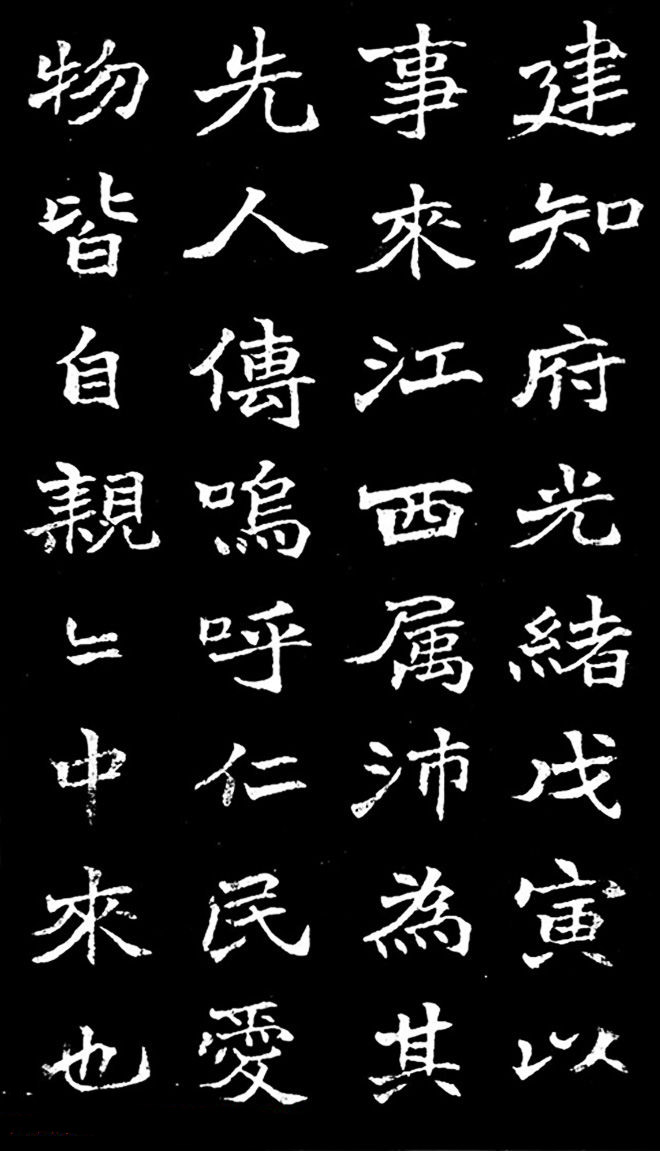 建知府光緒戊寅以
事來江西属沛為其
先人傳嗚呼仁民愛
物皆自親〻中來也